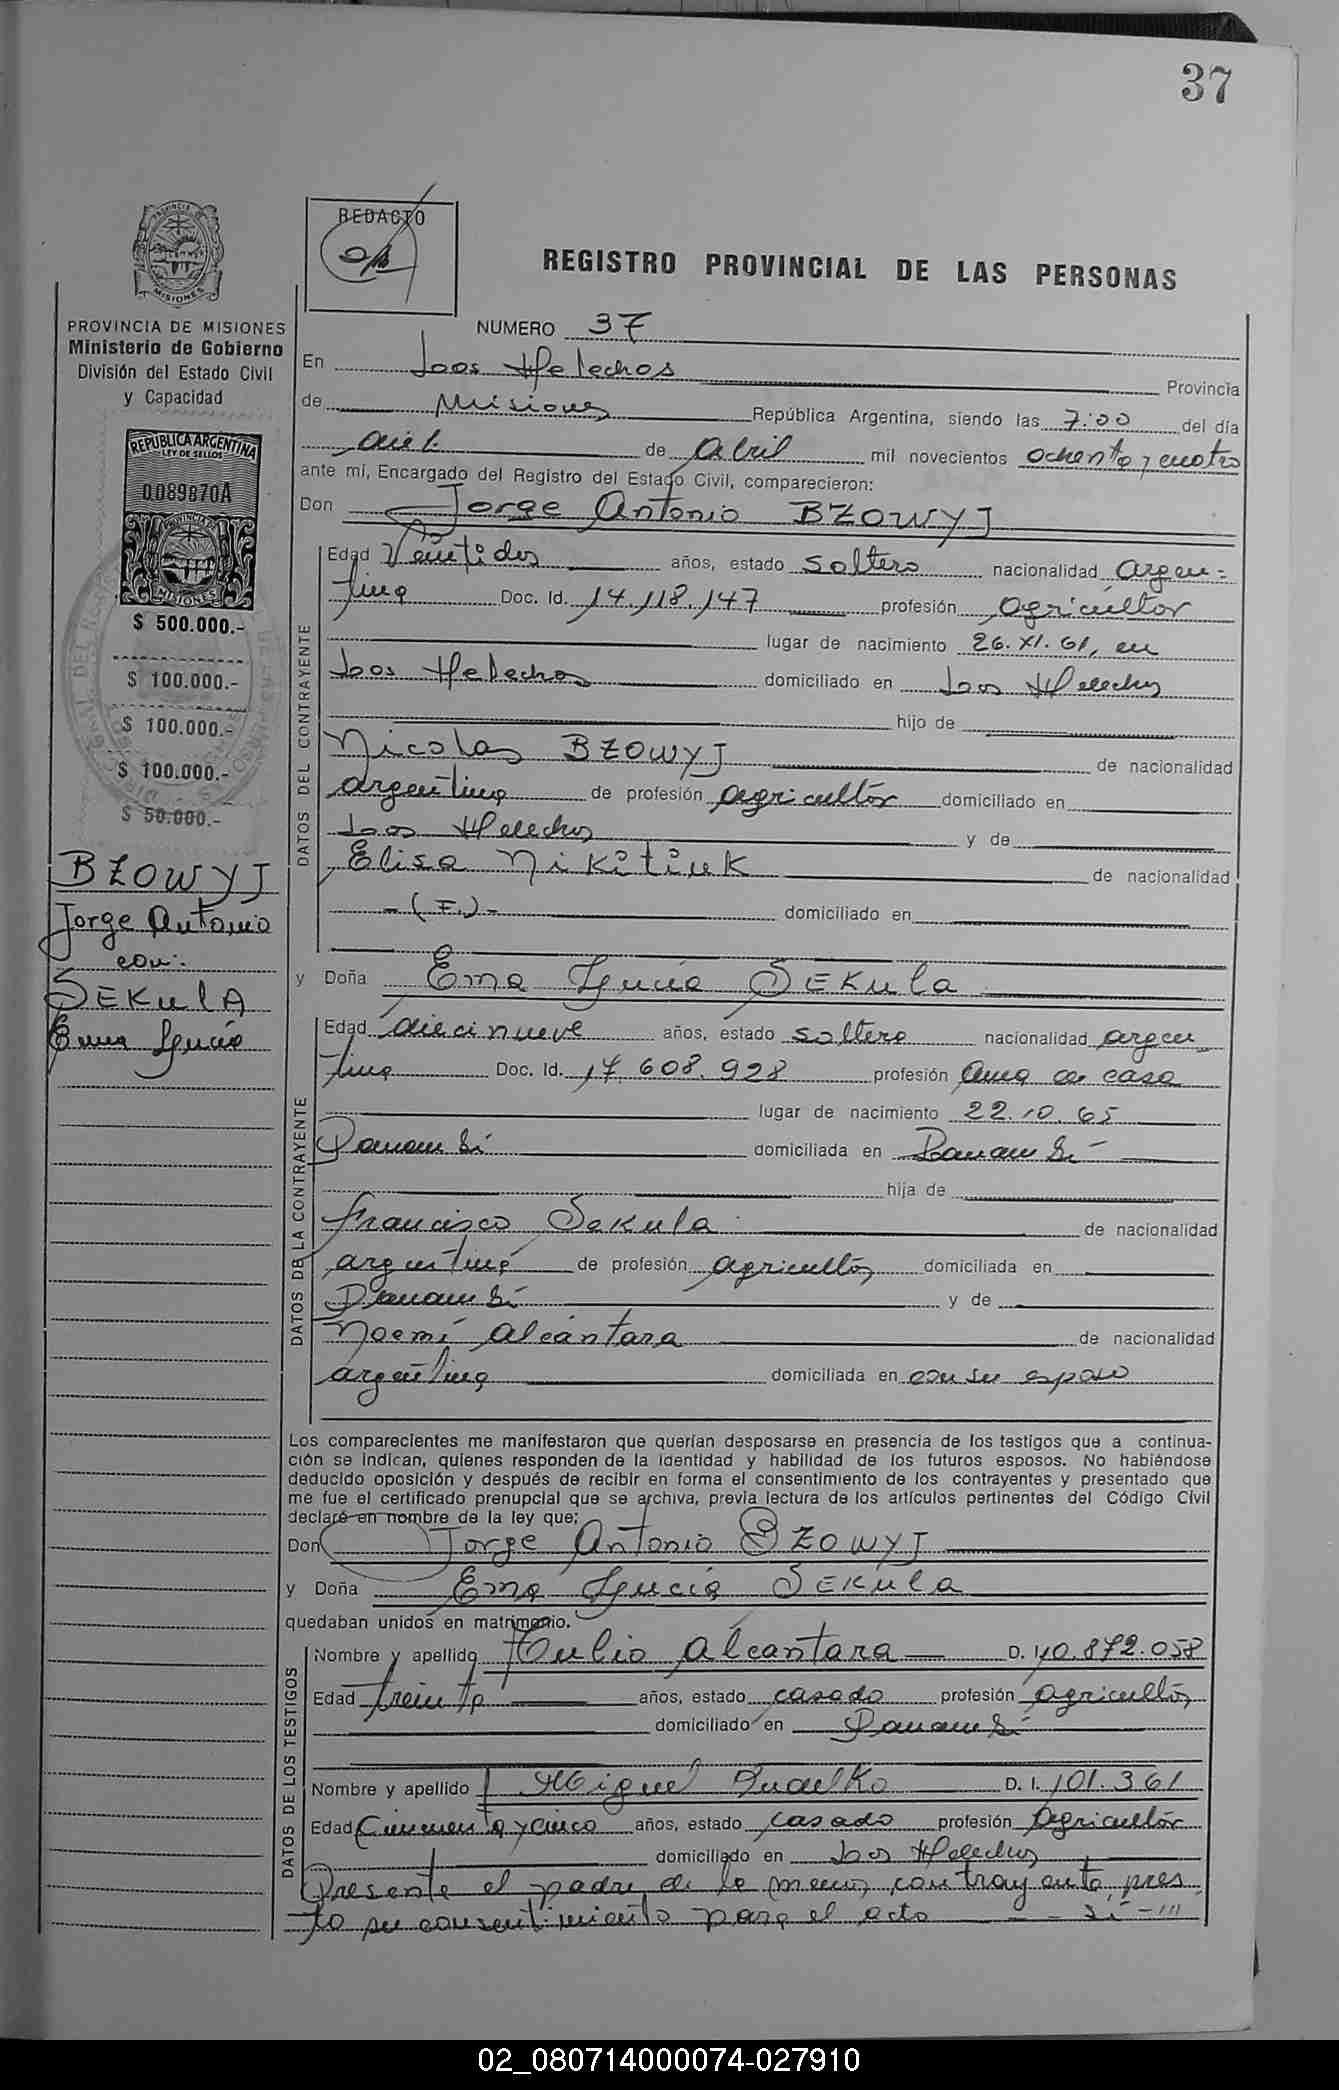 37
REDACTO
PROVINCIA DE MISIONES
REGISTRO PROVINCIAL DE LAS PERSONAS
PROVINCIA DE MISIONES
Ministerio de Gobierno
División del Estado Civil
y Capacidad
REPUBLICA ARGENTINA
LEY DE SELLOS
0.089870A
MISIONES
$ 500.000.-
$ 100.000.-
$ 100.000.-
$ 100.000.-
$ 50.000.-
BZOWYJ
Jorge Antonio
con:
SEKulA
Ema Lucia
NUMERO 37
En Los Helechos Provincia
de Misiones República Argentina, siendo las 7:00 del día
de Abril mil novecientos ochenta y cuatro
ante mí, Encargado del Registro del Estado Civil, comparecieron:
Don Jorge Antonio BZOWYJ
DATOS DEL CONTRAYENTE
Edad Veintidos años, estado soltero nacionalidad argen-
tina Doc. Id. 14.118.147 profesión agricultor
lugar de nacimiento 26.XI.61, en
Los Helechos domiciliado en Los Helechos
hijo de
Nicolas BZOWYJ de nacionalidad
argentina de profesión agricultor domiciliado en
Los Helechos y de
Elisa Nikitiuk de nacionalidad
-(F.)- domiciliado en
y Doña Ema Lucia SEKula
DATOS DE LA CONTRAYENTE
Edad diecinueve años, estado soltera nacionalidad argen
tina Doc. Id. 17.608.928 profesión ama de casa
lugar de nacimiento 22.10.65
Panambi domiciliada en Panambi
hija de
Francisco Sekula de nacionalidad
argentina de profesión agricultor domiciliada en
Panambi y de
Noemí Alcántara de nacionalidad
argentina domiciliada en con su esposo
Los comparecientes me manifestaron que querían desposarse en presencia de los testigos que a continua-
ción se indican, quienes responden de la identidad y habilidad de los futuros esposos. No habiéndose
deducido oposición y después de recibir en forma el consentimiento de los contrayentes y presentado que
me fue el certificado prenupcial que se archiva, previa lectura de los artículos pertinentes del Código Civil
declaré en nombre de la ley que:
Don Jorge Antonio BZOWYJ
y Doña Ema Lucia SEKula
quedaban unidos en matrimonio.
DATOS DE LOS TESTIGOS
Nombre y apellido Tulio Alcántara D. 10.872.058
Edad treinta años, estado casado profesión agricultor
domiciliado en Panambi
Nombre y apellido Miguel D. I. 101.361
Edad Cincuenta y cinco años, estado casado profesión Agricultor
domiciliado en Los Helechos
Presente el padre de la menor contrayente, pres
ta su consentimiento para el acto
02_080714000074-027910